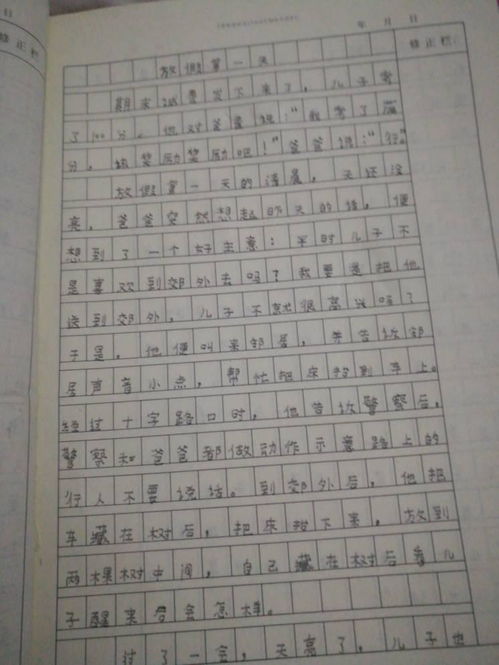 年 月 日
日
修正栏
修正栏
放假第一天
期末试卷发下来了，儿子考
了100分。他对爸爸说："我考了满
分，给奖励奖励吧！"爸爸说："行。"
放假第一天的清晨，天还没
亮，爸爸突然想起昨天的话，便
想到了一个好主意：平时儿子不
是喜欢到郊外去吗？我要是把他
送到郊外，儿子不就很高兴吗？
于是，他便叫来邻居，并告诉邻
居声音小点，帮忙把床抬到车上。
经过十字路口时，他告诉警察后，
警察和爸爸都做动作示意路上的
行人不要说话。到郊外后，他把
车藏在树后，把床抬下来，放到
两棵树中间，自己藏在树后看儿
子醒来后会怎样。
过了一会，天亮了，儿子也